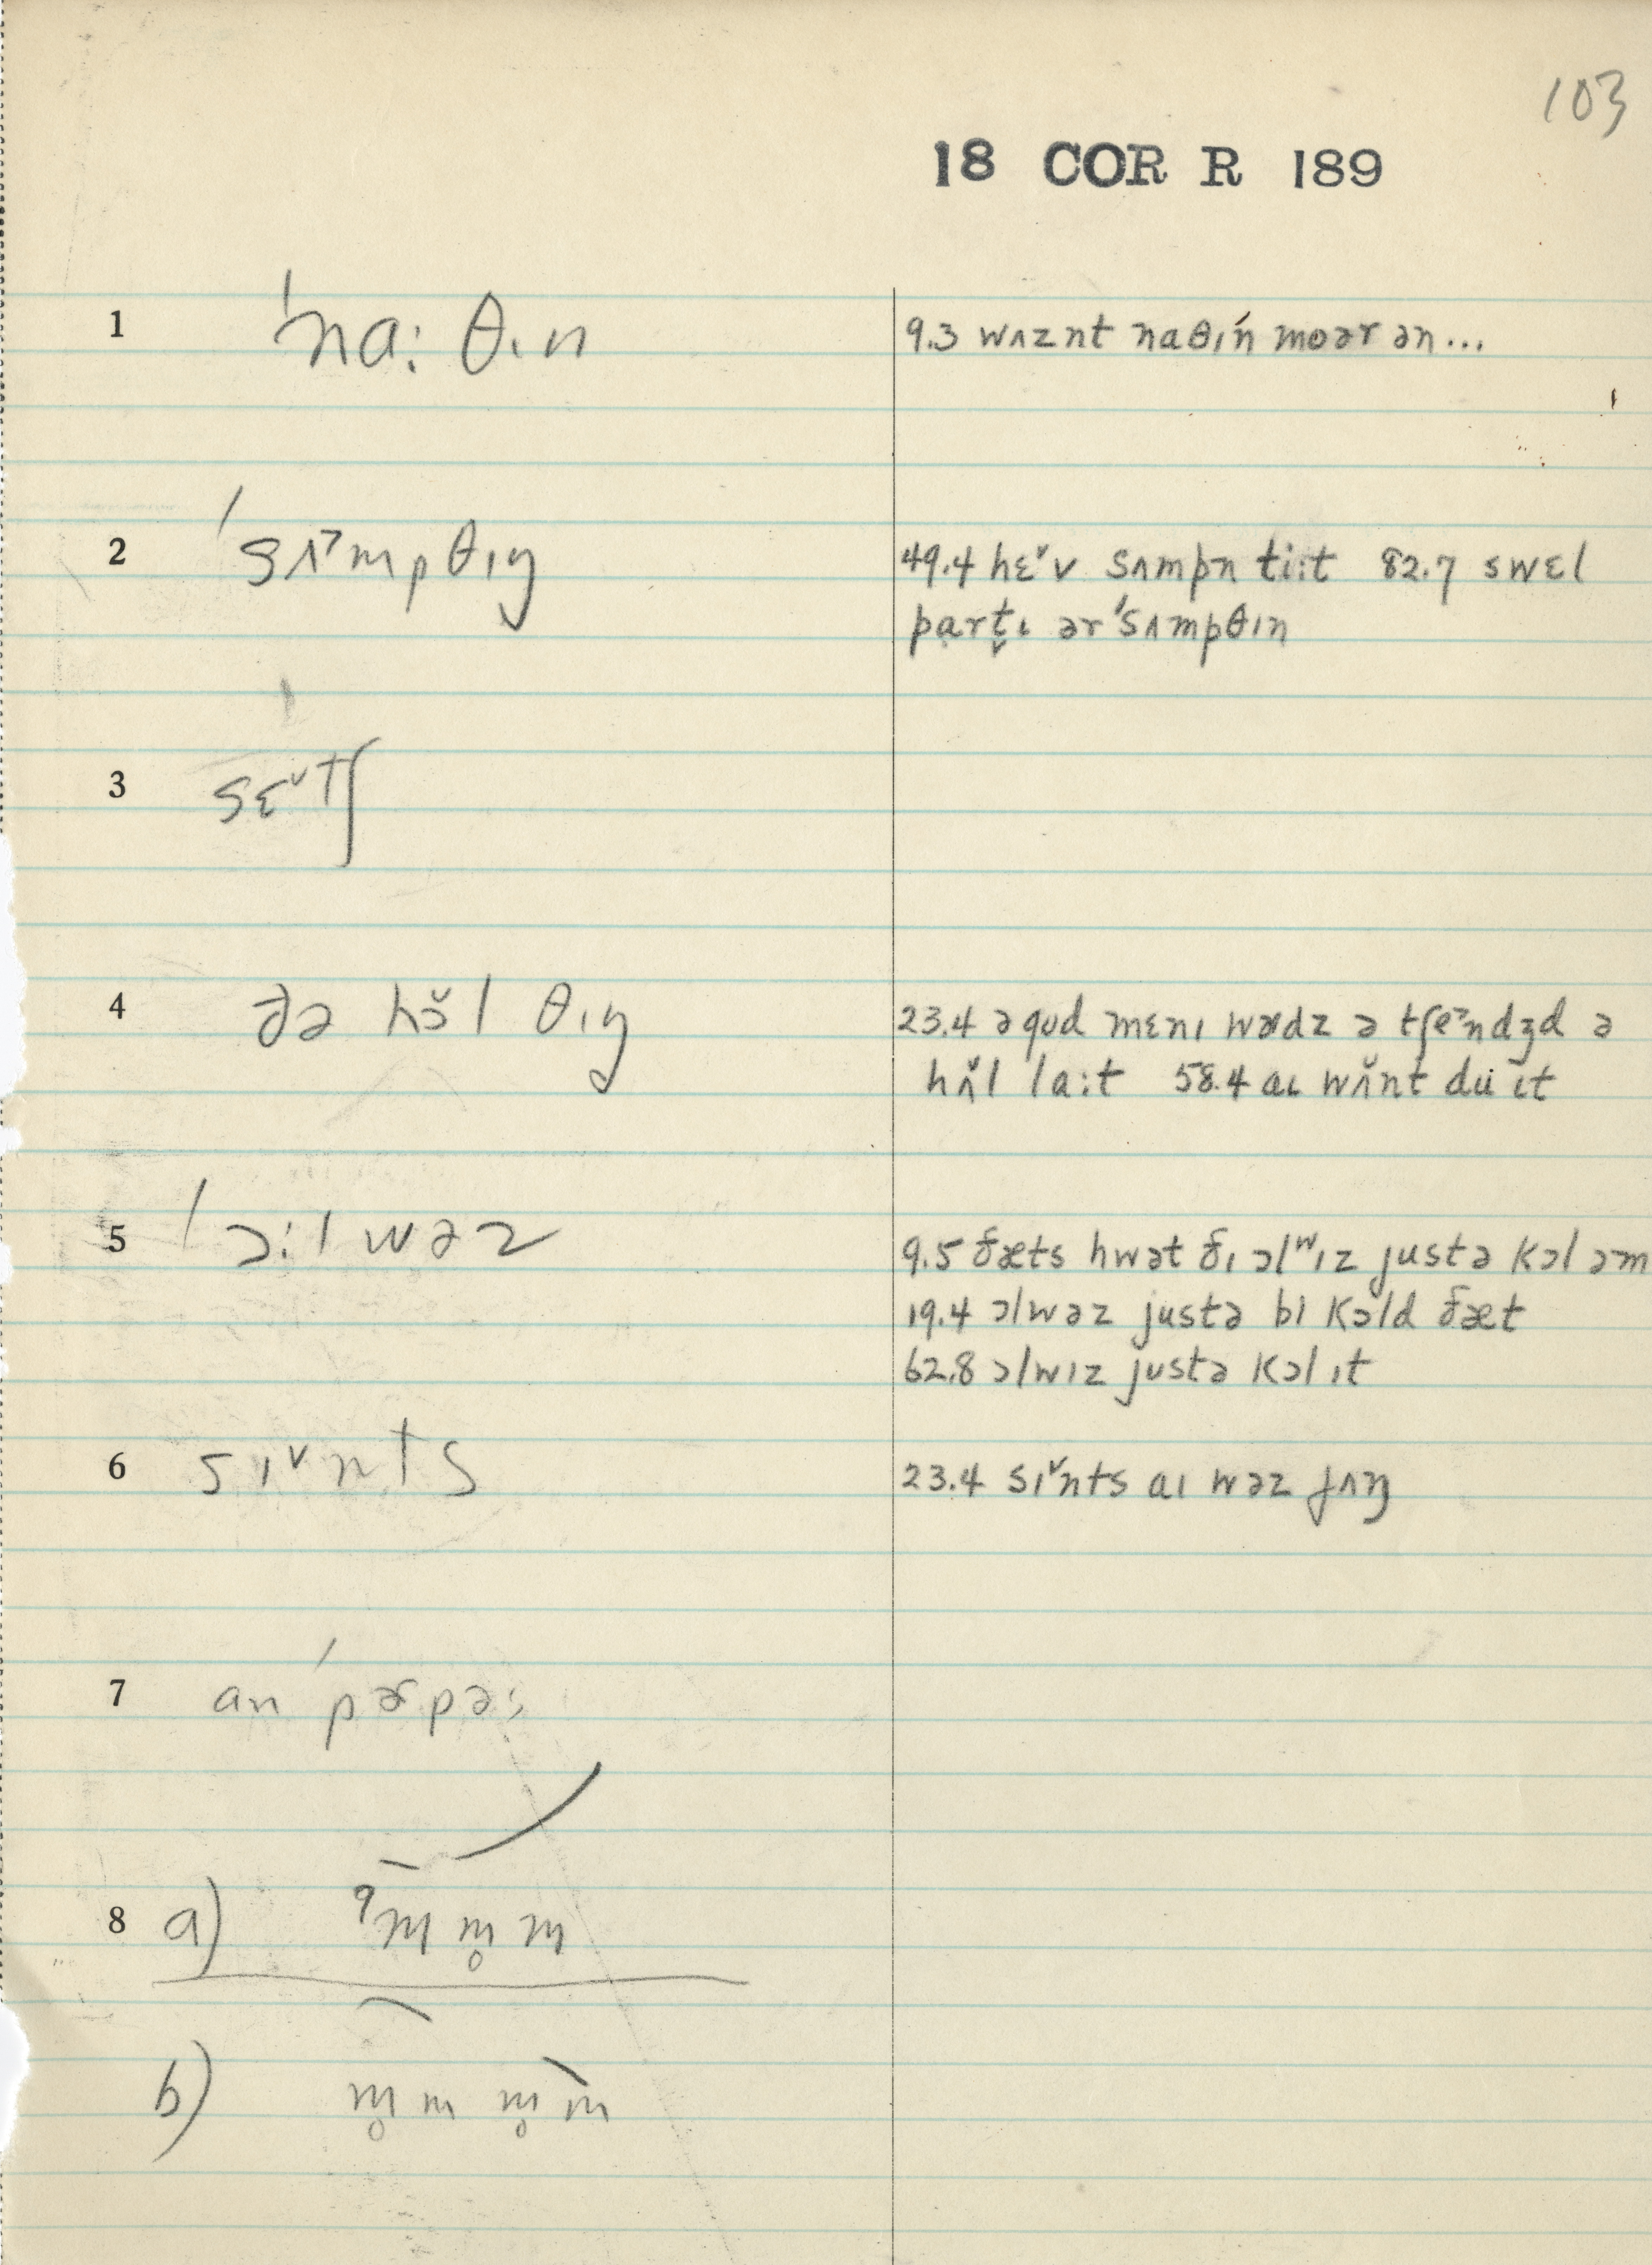 103
18 COR R 189
1 ˈna: θɪn
9.3 wʌznt naθɪ́n moər ən...
2 ˈsʌ˃mpθɪŋ
49.4 hɛ˅v sʌmpn ti:t 82.7 swɛl
part̬ɪ ər ˈsʌmpθɪn
3 sɛ˅tʃ
4 ðə hɔ̆l θɪŋ
23.4 ə gʊd mɛnɪ wɚdz ə tʃe˃ndʒd ə
hʌ̆l la:t 58.4 aɪ wʌ̆nt du ɪt
5 ˈɔ:lwəz
9.5 ðæts hwət ðɪ ɔlʷɪz justə kɔl əm
19.4 ɔlwəz justə bɪ kɔld ðæt
62.8 ɔlwɪz justə kɔl ɪt
6 sɪ˅nts
23.4 sɪ˅nts aɪ wəz jʌŋ
7 an ˈpɚpəs
8 a) ˀm m̥ m
b) m̥ m m̥ m